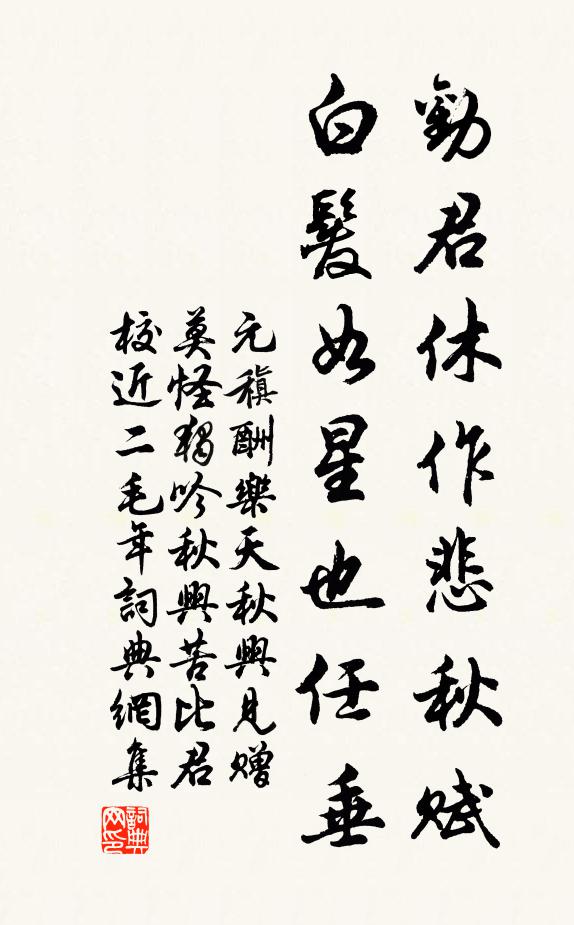 勸君休作悲秋賦
白髮如星也任垂
元稹酬樂天秋興見贈
莫怪獨吟秋興苦比君
校近二毛年詞典網集
詞典
网印